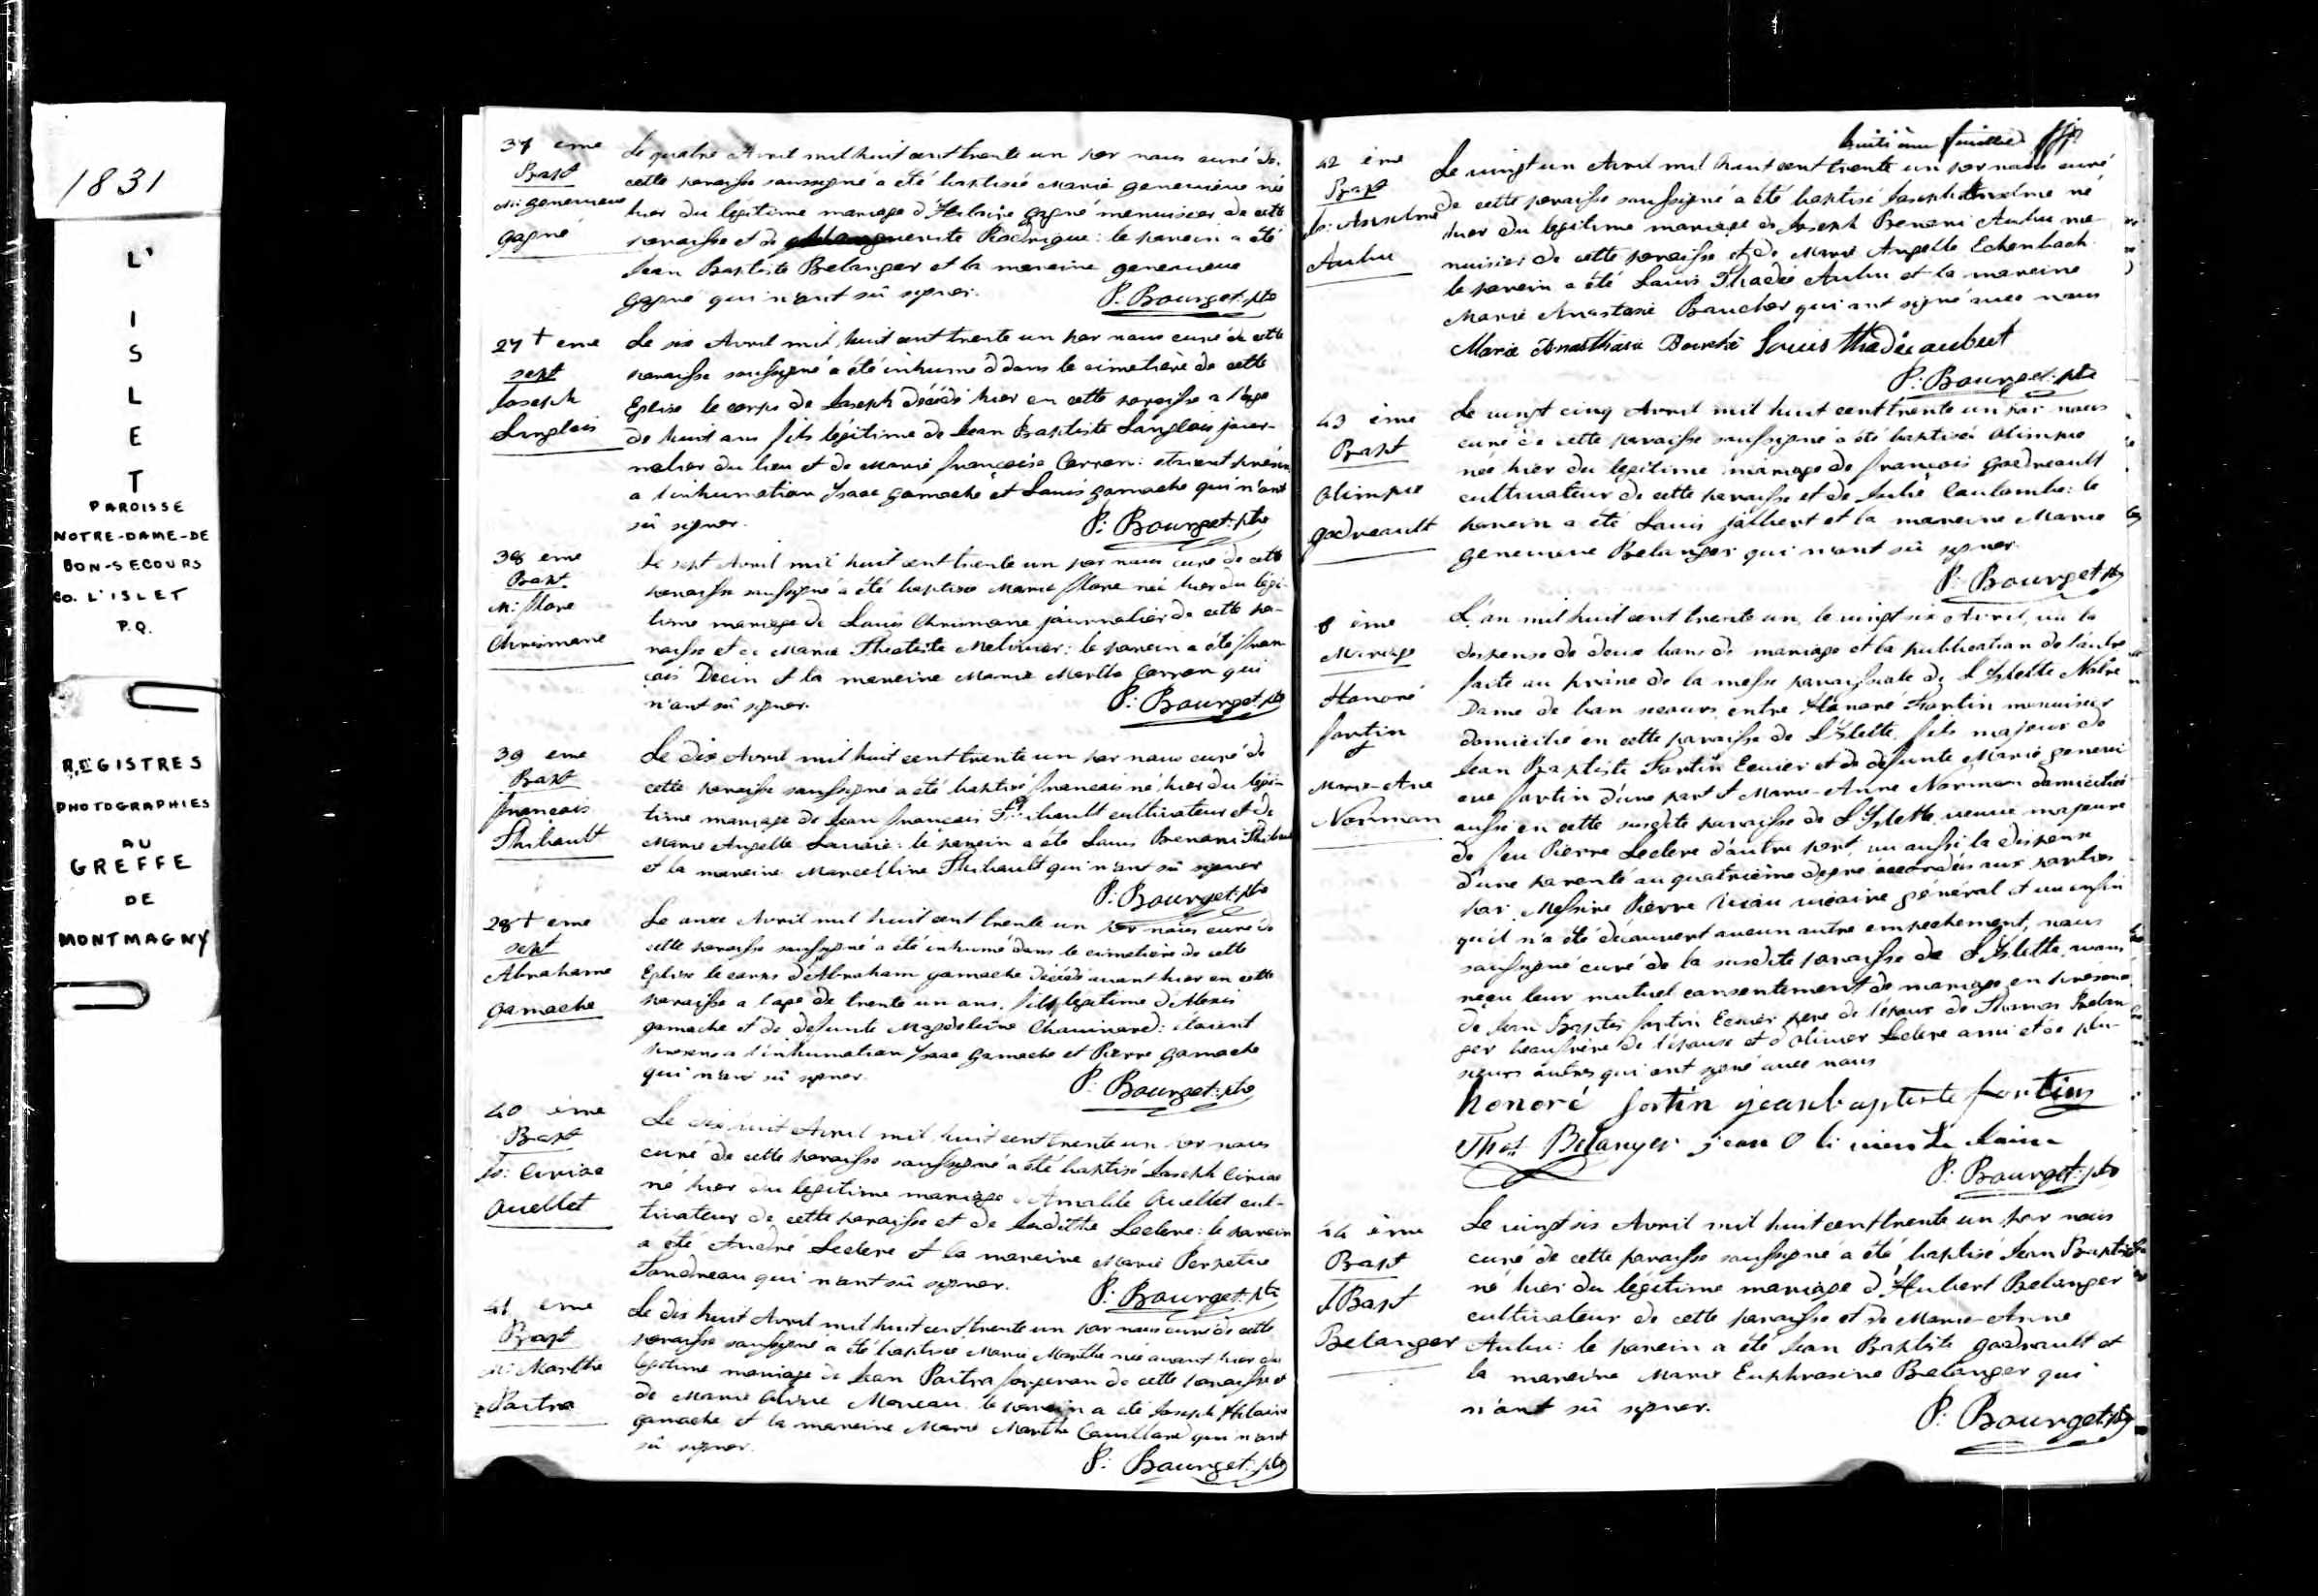 1831
L'
I
S
L
E
T
PAROISSE
NOTRE-DAME-DE
BON-SECOURS
CO. L'ISLET
P.Q.
REGISTRES
PHOTOGRAPHIES
AU
GREFFE
DE
MONTMAGNY
37 eme
Bapt
M: genevieve
gagné
Le quatre Avril mil huit cent trente un par nous curé de
cette paroisse soussigné a été baptisée Marie genevieve née
hier du légitime mariage d'Hilaire gagné menuisier de cette
paroisse et de Marguerite Rodrigue: le parein a été
Jean Baptiste Belanger et la mareine genevieve
gagné qui n'ont sû signer.
P: Bourget: ptre
27 + eme
sept
Joseph
Langlois
Le six Avril mil huit cent trente un par nous curé de cette
paroisse soussigné a été inhumé dans le cimetière de cette
Eglise le corps de Joseph décédé hier en cette paroisse a l'age
de huit ans fils légitime de Jean Baptiste Langlois jour-
nalier du lieu et de Marie françoise Carron: etoient présens
a l'inhumation Isaac gamache et Louis gamache qui n'ont
sû signer.
P: Bourget: ptre
38 eme
Bapt
M: flore
Chrismane
Le sept Avril mil huit cent trente un par nous curé de cette
paroisse soussigné a été baptisée Marie flore née hier du légi-
time mariage de Louis Chrismane journalier de cette pa-
roisse et de Marie Theotiste Metivier: le parein a été fran
cois Decin et la mareine Marie Marthe Carron qui
n'ont sû signer.
P: Bourget: ptre
39 eme
Bapt
françois
Thibault
Le dix Avril mil huit cent trente un par nous curé de
cette paroisse soussigné a été baptisé francois né hier du légi-
time mariage de Jean françois Thibault cultivateur et de
Marie Angelle: le parein a été Louis Benoni Thibault
et la mareine Marcelline Thibault qui n'ont sû signer
P: Bourget: ptre
28 + eme
sept
Abrahame
gamache
Le onze Avril mil huit cent trente un par nous curé de
cette paroisse soussigné a été inhumé dans le cimetiere de cette
Eglise le corps d'Abraham gamache décédé avant hier en cette
paroisse a l'age de trente un ans, fils légitime d'Alexis
gamache et de defunte Magdeleine Chouinard: étoient
presens a l'inhumation Isaac gamache et Pierre gamache
qui n'ont sû signer.
P: Bourget: ptre
40 ème
Bapt
Js: Ciriac
Ouellet
Le dix huit Avril mil huit cent trente un par nous
curé de cette paroisse soussigné a été baptisé Joseph Ciriac
né hier du legitime mariage d'Amable Ouellet cul-
tivateur de cette paroisse et de Judithe Leclerc: le parein
a été André Leclerc et la mareine Marie Perpetue
Jondreau qui n'ont sû signer.
P: Bourget: ptre
41 eme
Bapt
M: Marthe
Poitra
Le dix huit Avril mil huit cent trente un par nous curé de cette
paroisse soussigné a été baptisée Marie Marthe née avant hier du
legitime mariage de Jean Poitra forgeron de cette paroisse et
de Marie Moreau le parein a été Joseph Hilaire
gamache et la mareine Marie Marthe Couillard qui n'ont
sû signer.
P: Bourget: ptre
huitième feuillet
42 ème
Bapt
Js: Anselme
Aubu
Le vingt un Avril mil huit cent trente un par nous curé
de cette paroisse soussigné a été baptisé Joseph Anselme né
hier du legitime mariage de Joseph Benoni Aubu me-
nuisier de cette paroisse et de Marie Angelle Echenbach
le parein a été Louis Thadée Aubu et la mareine
Marie Anastasie Boucher qui ont signé avec nous
Marie Anasthasie Bouché Louis thadée aubut
P: Bourget: ptre
43 ème
Bapt
Olimpie
godreault
Le vingt cinq Avril mil huit cent trente un par nous
curé de cette paroisse soussigné a été baptisée Olimpie
née hier du legitime mariage de françois godreault
cultivateur de cette paroisse et de Julie Coulombe: le
parein a été Louis jalbert et la mareine Marie
genevieve Belanger qui n'ont sû signer.
P: Bourget: ptre
8 ème
Mariage
Honoré
fortin
&
Marie-Ane
Norman
L'an mil huit cent trente un, le vingt six Avril, vû la
dispense de deux bans de mariage et la publication de l'autre
faite au prône de la messe paroissiale de L'Islette Notre
Dame de bon secours entre Honoré Fortin menuisier
domicilié en cette paroisse de L'Islette, fils majeur de
Jean Baptiste Fortin Ecuier et de defunte Marie genevi
eve fortin d'une part et Marie-Anne Norman domiciliée
aussi en cette susdite paroisse de L'Islette veuve majeure
de feu Pierre Leclerc d'autre part, vu aussi la dispense
d'une parenté au quatrième degré accordée aux parties
par Messire Pierre Viau vicaire général et vu enfin
qu'il n'a été découvert aucun autre empechement, nous
soussigné curé de la susdite paroisse de L'Islette avons
reçu leur mutuel consentement de mariage en présence
de Jean Baptiste fortin Ecuier pere de l'époux de Thomas Belan
ger beaufrère de l'épouse et d'Olivier Leclerc ami et de plu-
sieurs autres qui ont signé avec nous
honoré fortin jeanbaptiste fortin
Thos. Belanger jean Olivier Le claire
P: Bourget: ptre
44 ème
Bapt
J Bapt
Belanger
Le vingt six Avril mil huit cent trente un par nous
curé de cette paroisse soussigné a été baptisé Jean Baptiste
né hier du légitime mariage d'Hubert Belanger
cultivateur de cette paroisse et de Marie-Anne
Aubu: le parein a été Jean Baptiste godreault et
la mareine Marie Euphrosine Belanger qui
n'ont sû signer.
P: Bourget: ptre